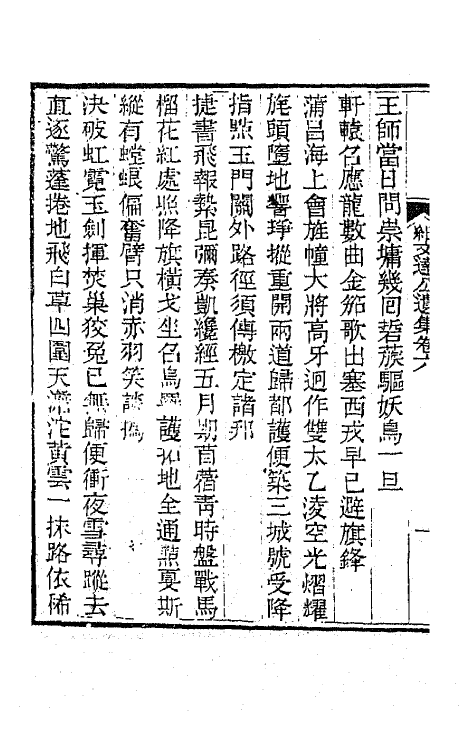 紀文達公遺集卷六 一
王師當日問崇墉幾囘硩蔟驅妖鳥一旦
軒轅召應龍數曲金笳歌出塞西戎早已避旗鋒
蒲昌海上會旌幢大將高牙迥作雙太乙淩空光熠耀
旄頭墮地響琤摐重開兩道歸都護便築三城號受降
指㸃玉門關外路徑須傳檄定諸邦
捷書飛報縶昆彌奏凱纔經五月期苜蓿靑時盤戰馬
榴花紅處照降旗橫戈坐名烏壘護拓地全通黠戛斯
縱有螳蜋偏奮臂只消赤羽笑談撝
決破虹霓玉劍揮焚巢狡兔已無歸便衝夜雪尋蹤去
直逐驚蓬捲地飛白草四圍天黃雲一抹路依稀